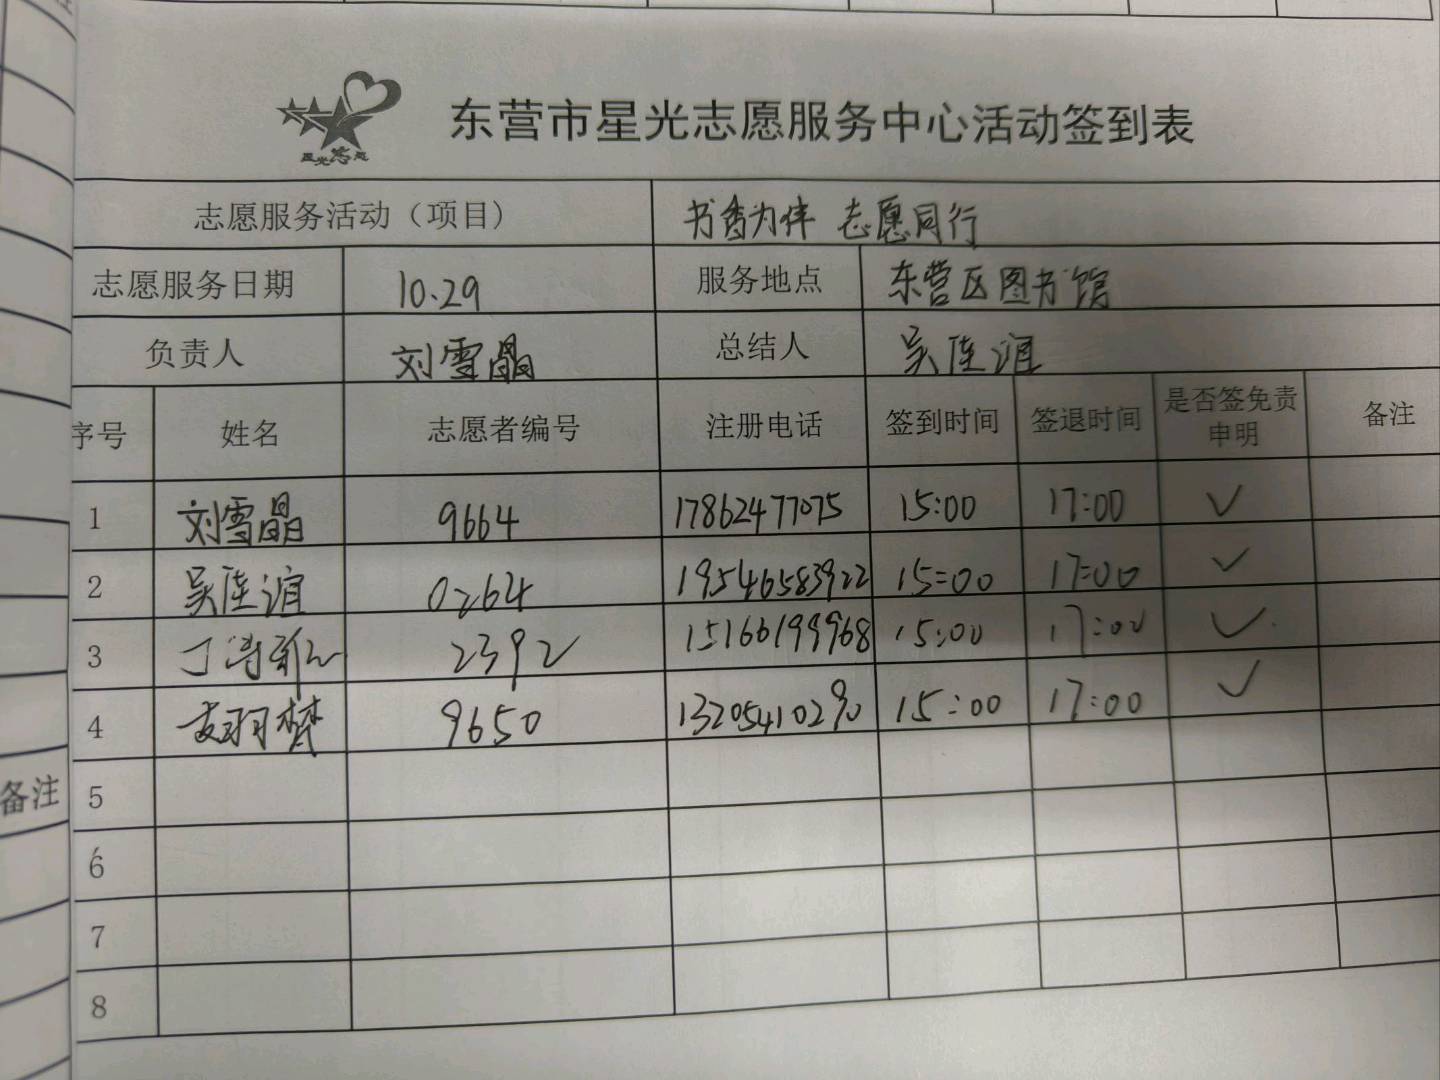 星光志愿
东营市星光志愿服务中心活动签到表
志愿服务活动（项目） 书香为伴 志愿同行
志愿服务日期 10.29 服务地点 东营区图书馆
负责人 刘雪晶 总结人 吴佳谊
序号 姓名 志愿者编号 注册电话 签到时间 签退时间 是否签免责申明 备注
1 刘雪晶 9664 17862477075 15:00 17:00 ✓
2 吴佳谊 0264 19546583922 15:00 17:00 ✓
3 丁 2392 15166199968 15:00 17:00 ✓
4 9650 13205410290 15:00 17:00 ✓
5
6
7
8
备注